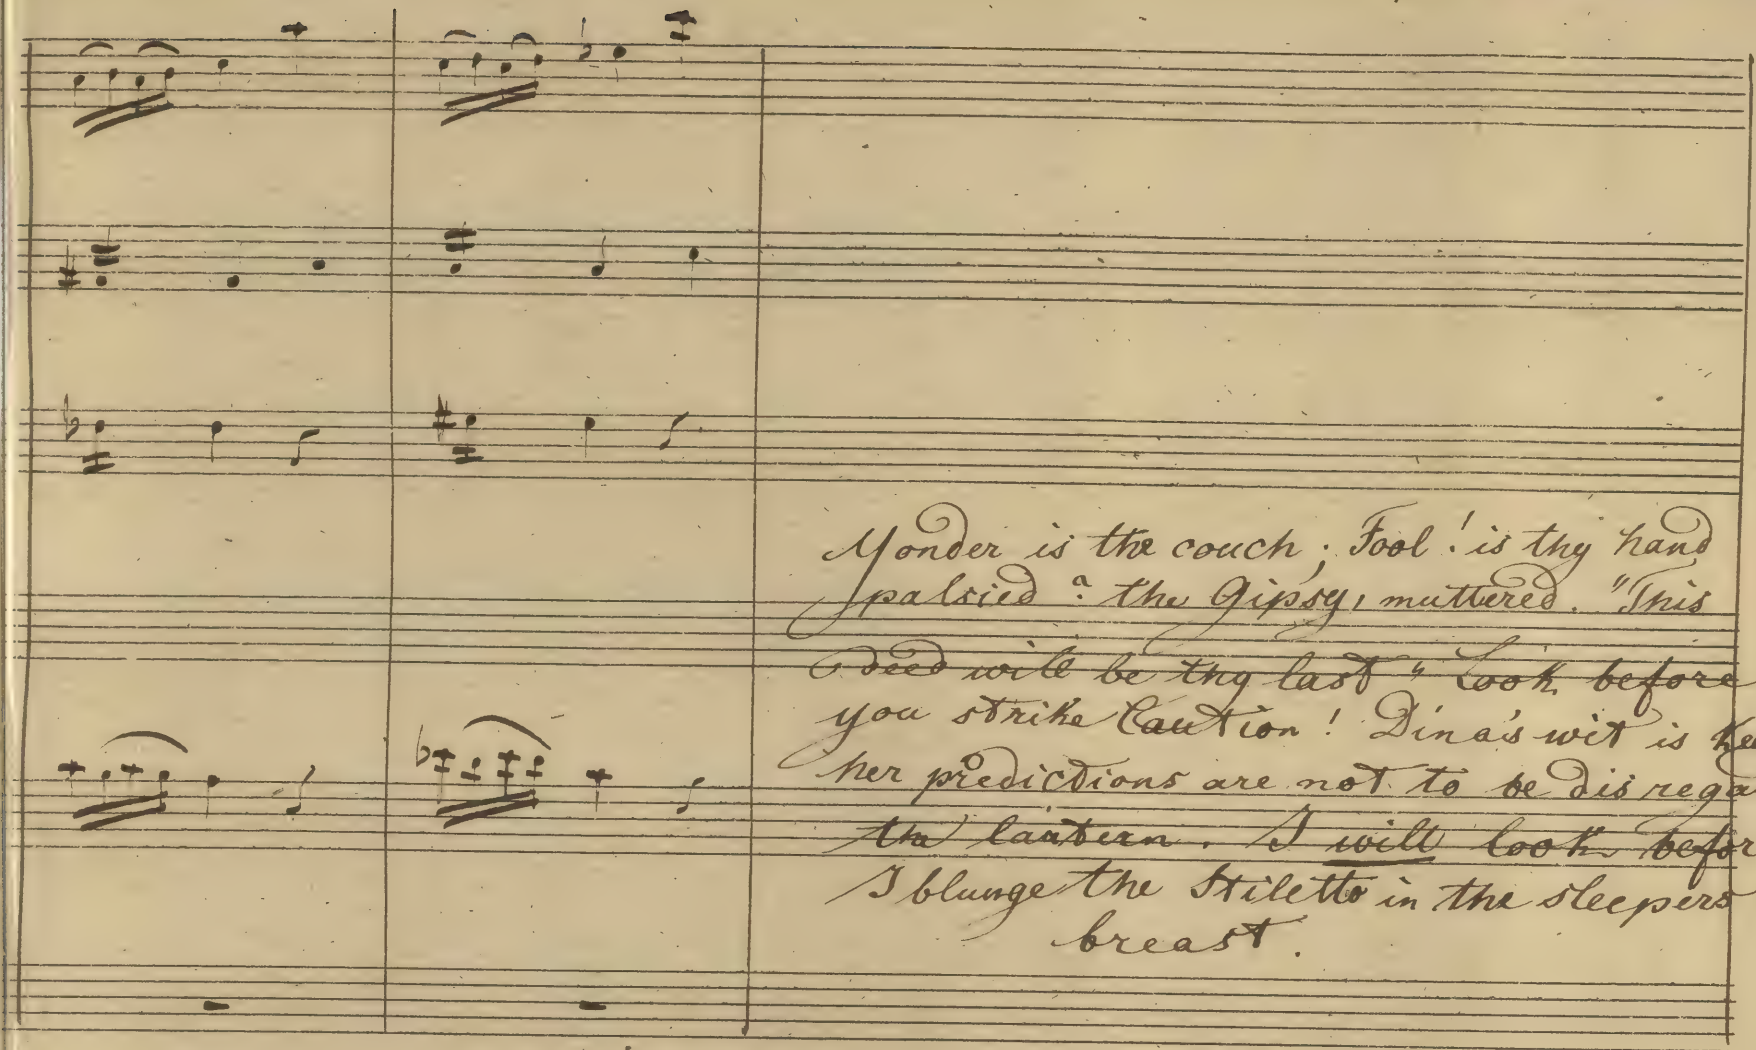 Yonder is the couch; Fool! is thy hand
palsied? the Gipsy, muttered. "This
deed will be thy last" Look before
you strike Caution! Dina's wit is kee
her predictions are not to be disrega
the lantern. I will look befor
I blunge the Stiletto in the sleepers
breast.